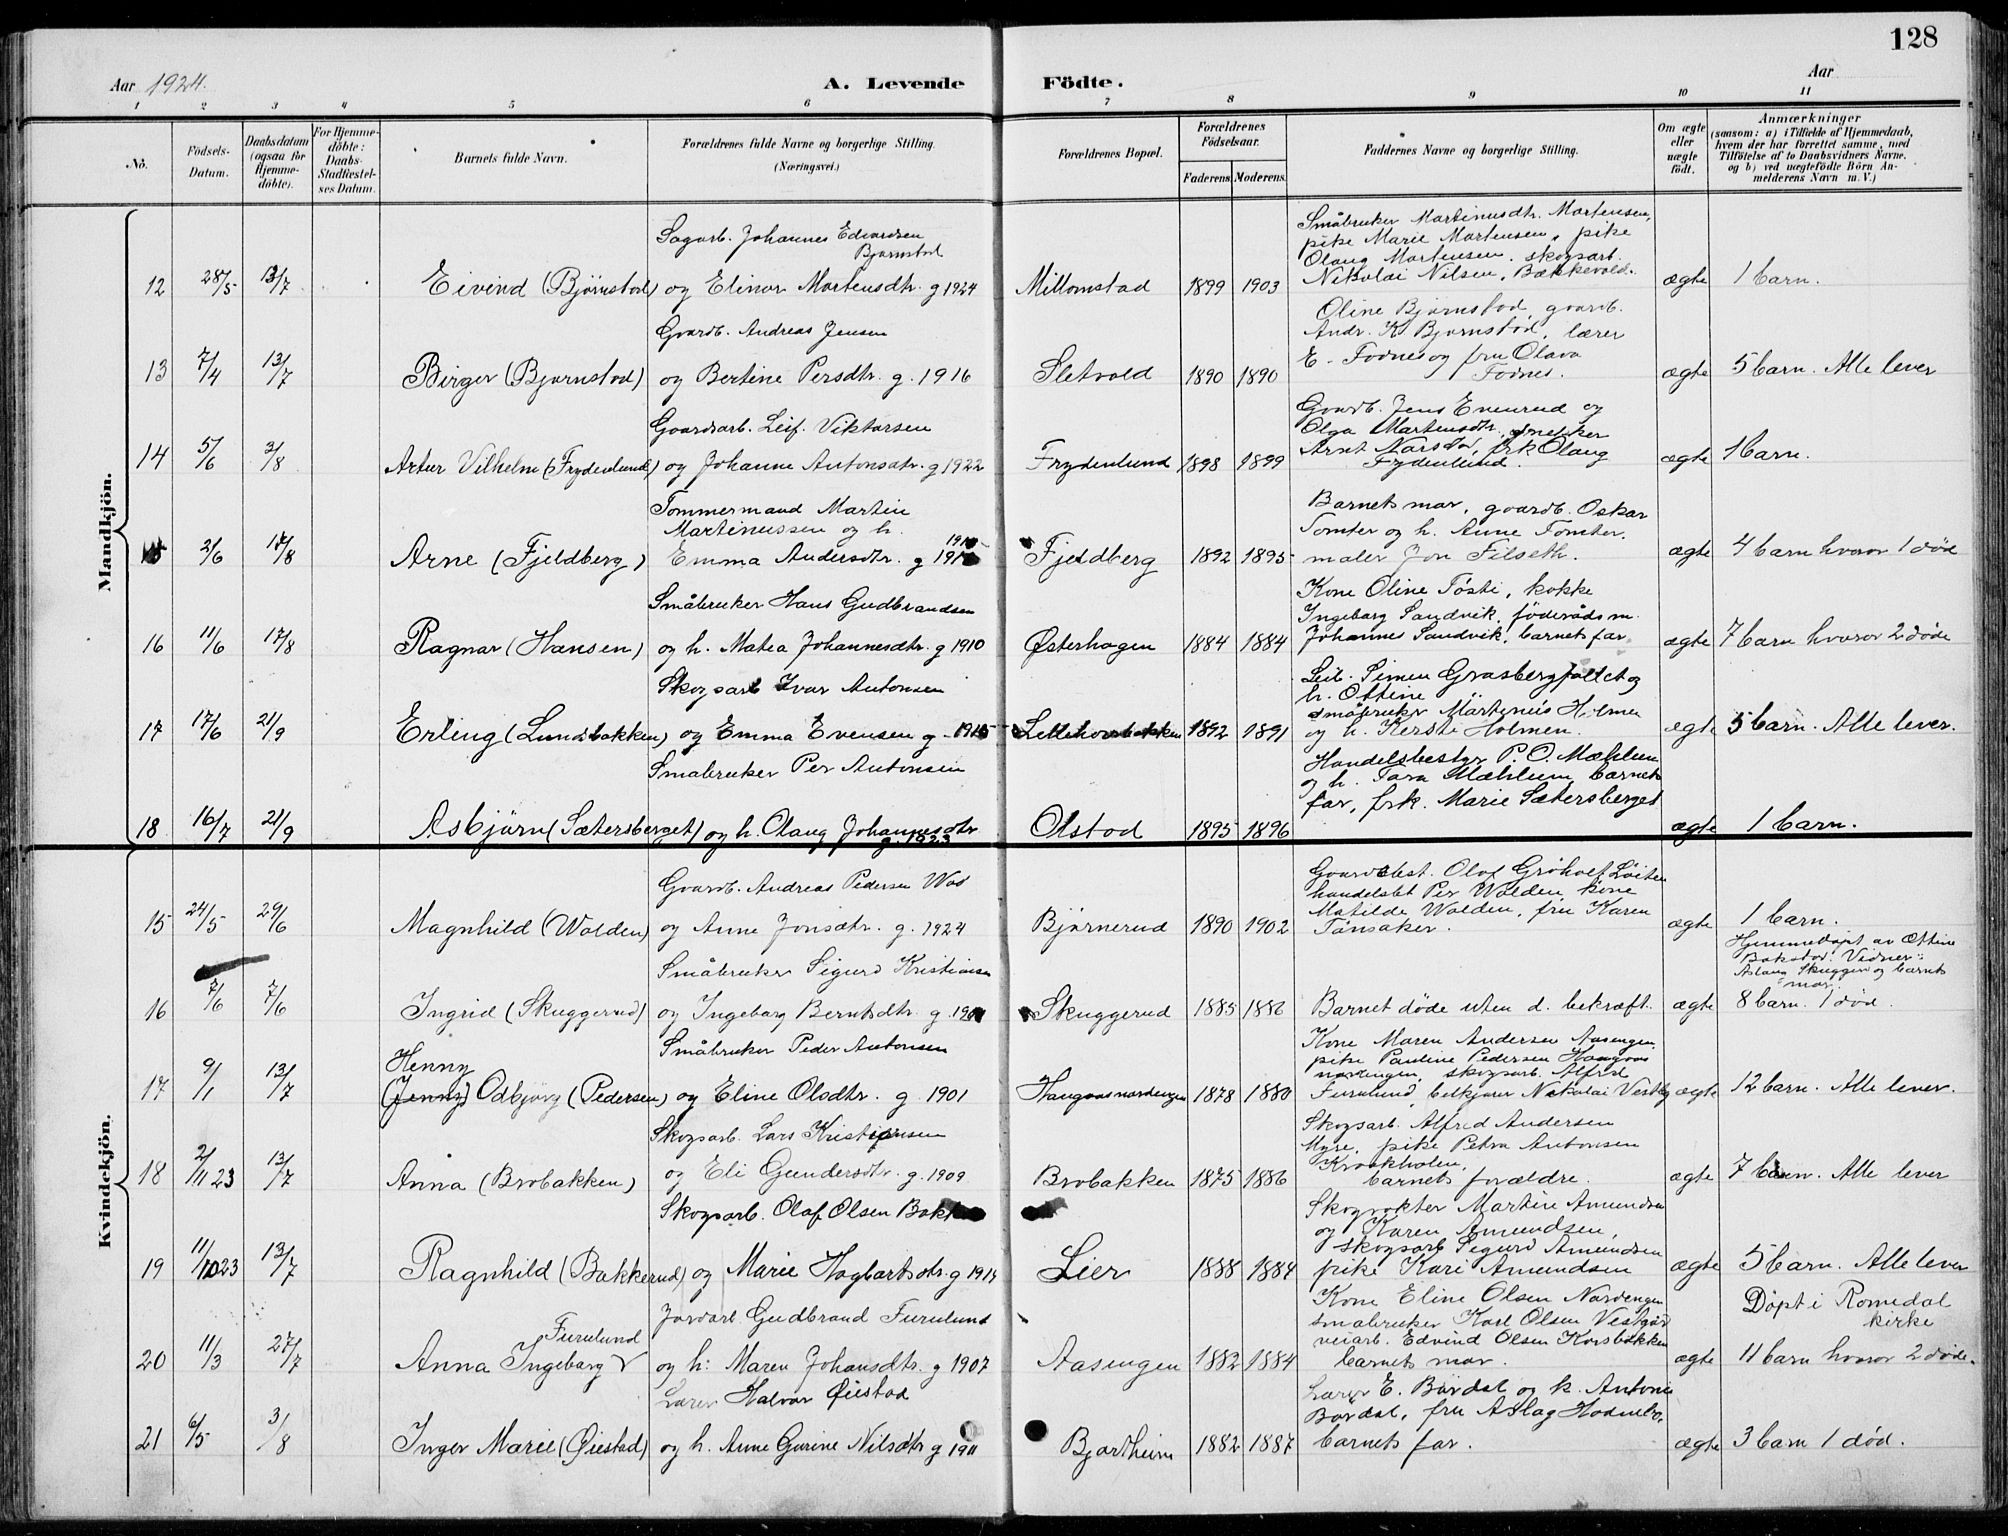 128
Aar 1924.
A. Levende Födte.
Aar
1 2 3 4 5 6 7 8 9 10 11
No.
Födsels-Datum.
Daabsdatum (ogsaa for Hjemme-döbte).
For Hjemme-döbte: Daabs-Stadfæstel-ses Datum.
Barnets fulde Navn.
Forældrenes fulde Navne og borgerlige Stilling.
(Næringsvei.)
Forældrenes Bopæl.
Forældrenes Födselsaar.
Faderens. Moderens.
Faddernes Navne og borgerlige Stilling.
Om ægte eller uægte födt.
Anmærkninger
(saasom: a) i Tilfælde af Hjemmedaab,
hvem der har forrettet samme, med
Tilföielse af to Daabsvidners Navne.
og b) ved uægtefödte Börn An-
melderens Navn m. V.)
Mandkjön.
Sagarb. Johannes Edvardsen
Bjørnstad
Småbruker Martinusdtr. Martensen,
pike Marie Martensen, pike
Olaug Martensen, skogsarb.
Nikolai Nilsen, Bækkevold.
12 28/5 13/7 Eivind (Bjørnstad) og Elinor Martensdtr. g 1924 Millomstad 1899 1903 ægte 1 barn.
Gaardb. Andreas Jensen
Oline Bjørnstad, gaardb.
Andr. K. Bjørnstad, lærer
E. Fodnes og fru Olava
Fodnes.
13 7/4 13/7 Birger (Bjørnstad) og Bertine Persdtr. g. 1916 Sletvold 1890 1890 ægte 5 barn. Alle lever
Gaardsarb. Leif Viktorsen
Gaardb. Jens Evenrud og
Olga Martensdtr., snekker
Arnt Narstad, frk Olaug
Frydenlund.
14 5/6 3/8 Artur Vilhelm (Frydenlund) og Johanne Antonsdtr. g 1922 Frydenlund 1898 1899 ægte 1 barn.
Tømmermand Martin
Martinussen og h.
Barnets mor, gaardb. Oskar
Tomter og h. Anne Tomter.
maler Jon Filseth.
15 2/6 17/8 Arne (Fjeldberg) Emma Andersdtr. g Fjeldberg 1892 1895 ægte 4 barn hvorav 1 død
Småbruker Hans Gudbrandsen
Kone Oline Tøsti, kokke
Ingeborg Sandvik, føderådsm.
Johannes Sandvik, barnets far.
16 11/6 17/8 Ragnar (Hansen) og h. Matea Johannesdtr. g 1910 Østerhagen 1884 1884 ægte 7 barn hvorav 2 døde
Skogsarb Ivar Antonsen
Leil. Simen Grasbergfaltet og
h. Ottine
småbruker Martenius Holmen
og h. Kersti Holmen.
17 17/6 21/9 Erling (Lundsbakken) og Emma Evensen g 1915 1892 1891 ægte 5 barn. Alle lever.
Småbruker Per Antonsen
Handelsbestyr P. O. Mæhlum
og h. Tora Mæhlum, barnets
far, frk. Marie Sætersberget
18 16/7 21/9 Asbjørn (Sætersberget) og h. Olaug Johannesdtr Olstad 1895 1896 ægte 1 barn.
g. 1923
Kvindekjön.
Gaardb. Andreas Pedersen Wod
Gaardbest. Olaf Grøholt Løiten
handelsbt Per Wolden, kone
Matilde Wolden, fru Karen
Tønsaker.
15 24/5 29/6 Magnhild (Wolden) og Anne Jonsdtr. g. 1924 Bjørnerud 1890 1902 ægte 1 barn.
Småbruker Sigurd Kristiansen
Hjemmedøpt av Ottine
Bakstad. Vidner:
Aslaug Skuggen og barnets
mor.
16 7/6 7/6 Ingrid (Skuggerud) og Ingeborg Berntsdtr. g. Skuggerud 1885 1886 Barnet døde uten d. bekræft. ægte 8 barn. 1 død.
Småbruker Peder Antonsen
Kone Maren Andersen Aasengen,
pike Pauline Pedersen Haugaas
nordengen, skogsarb. Alfred
Furulund, Nikolai Vestby
Henny
17 9/1 13/7 (Jenny) Odbjørg (Pedersen) og Eline Olsdtr. g. 1901 Haugaasnordengen 1878 1880 ægte 12 barn. Alle lever.
Skogsarb. Lars Kristiansen
Skogsarb. Alfred Andersen
Myre, pike Petra Antonsen
Kraakholen,
barnets forældre.
18 2/11 23 13/7 Anna (Brobakken) og Eli Gundersdtr. g. 1909 Brobakken 1875 1886 ægte 7 barn. Alle lever
Skogsarb. Olaf Olsen
Skogvokter Martin Amundsen
og Karen Amundsen,
skogsarb Sigurd Amundsen
pike Kari Amundsen
19 11/10 23 13/7 Ragnhild (Bakkerud) og Marie Hagbartsdtr. g 1914 Lier 1888 1884 ægte 5 barn. Alle lever
Jordarb. Gudbrand Furulund
Kone Eline Olsen Nordengen
småbruker Karl Olsen Vestgård
veiarb. Edvind Olsen Korsbakken
barnets mor.
Døpt i Romedal
kirke
Furulund
20 11/3 27/7 Anna Ingeborg og h: Maren Johansdtr. g 1907 Aasengen 1882 1884 ægte 11 barn hvorav 2 døde.
Lærer Halvor Øiestad
Lærer E. Børdal og k. Antonie
Børdal, fru Aslag Hodnebo,
barnets far.
21 6/5 3/8 Inger Marie (Øiestad) og h. Anne Gurine Nilsdtr g 1911 Bjartheim 1882 1887 ægte 3 barn 1 død.